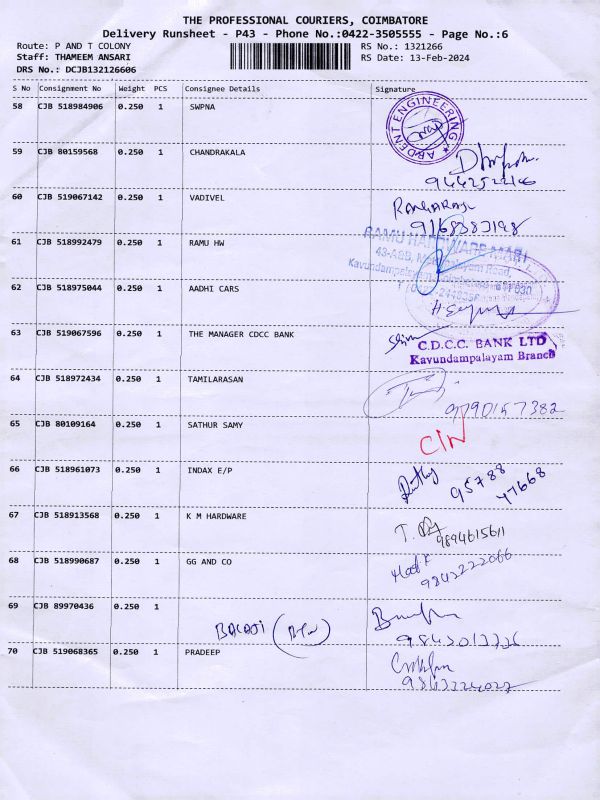 THE PROFESSIONAL COURIERS, COIMBATORE
Delivery Runsheet - P43 - Phone No.:0422-3505555 - Page No.:6
Route: P AND T COLONY RS No.: 1321266
Staff: THAMEEM ANSARI RS Date: 13-Feb-2024
DRS No.: DCJB132126606
S No Consignment No Weight PCS Consignee Details Signature
58 CJB 518984906 0.250 1 SWPNA
ABDENT ENGINEERING
59 CJB 80159568 0.250 1 CHANDRAKALA
60 CJB 519067142 0.250 1 VADIVEL
RANGARAJ
9168383198
61 CJB 518992479 0.250 1 RAMU HW
RAMU HARDWARE MART
Kavundampalayam
62 CJB 518975044 0.250 1 AADHI CARS
63 CJB 519067596 0.250 1 THE MANAGER CDCC BANK
C.D.C.C. BANK LTD
Kavundampalayam Branch
64 CJB 518972434 0.250 1 TAMILARASAN
9790157382
65 CJB 80109164 0.250 1 SATHUR SAMY
66 CJB 518961073 0.250 1 INDAX E/P
95788
47668
67 CJB 518913568 0.250 1 K M HARDWARE
9894615611
68 CJB 518990687 0.250 1 GG AND CO
9842222066
69 CJB 89970436 0.250 1
BALAJI
70 CJB 519068365 0.250 1 PRADEEP